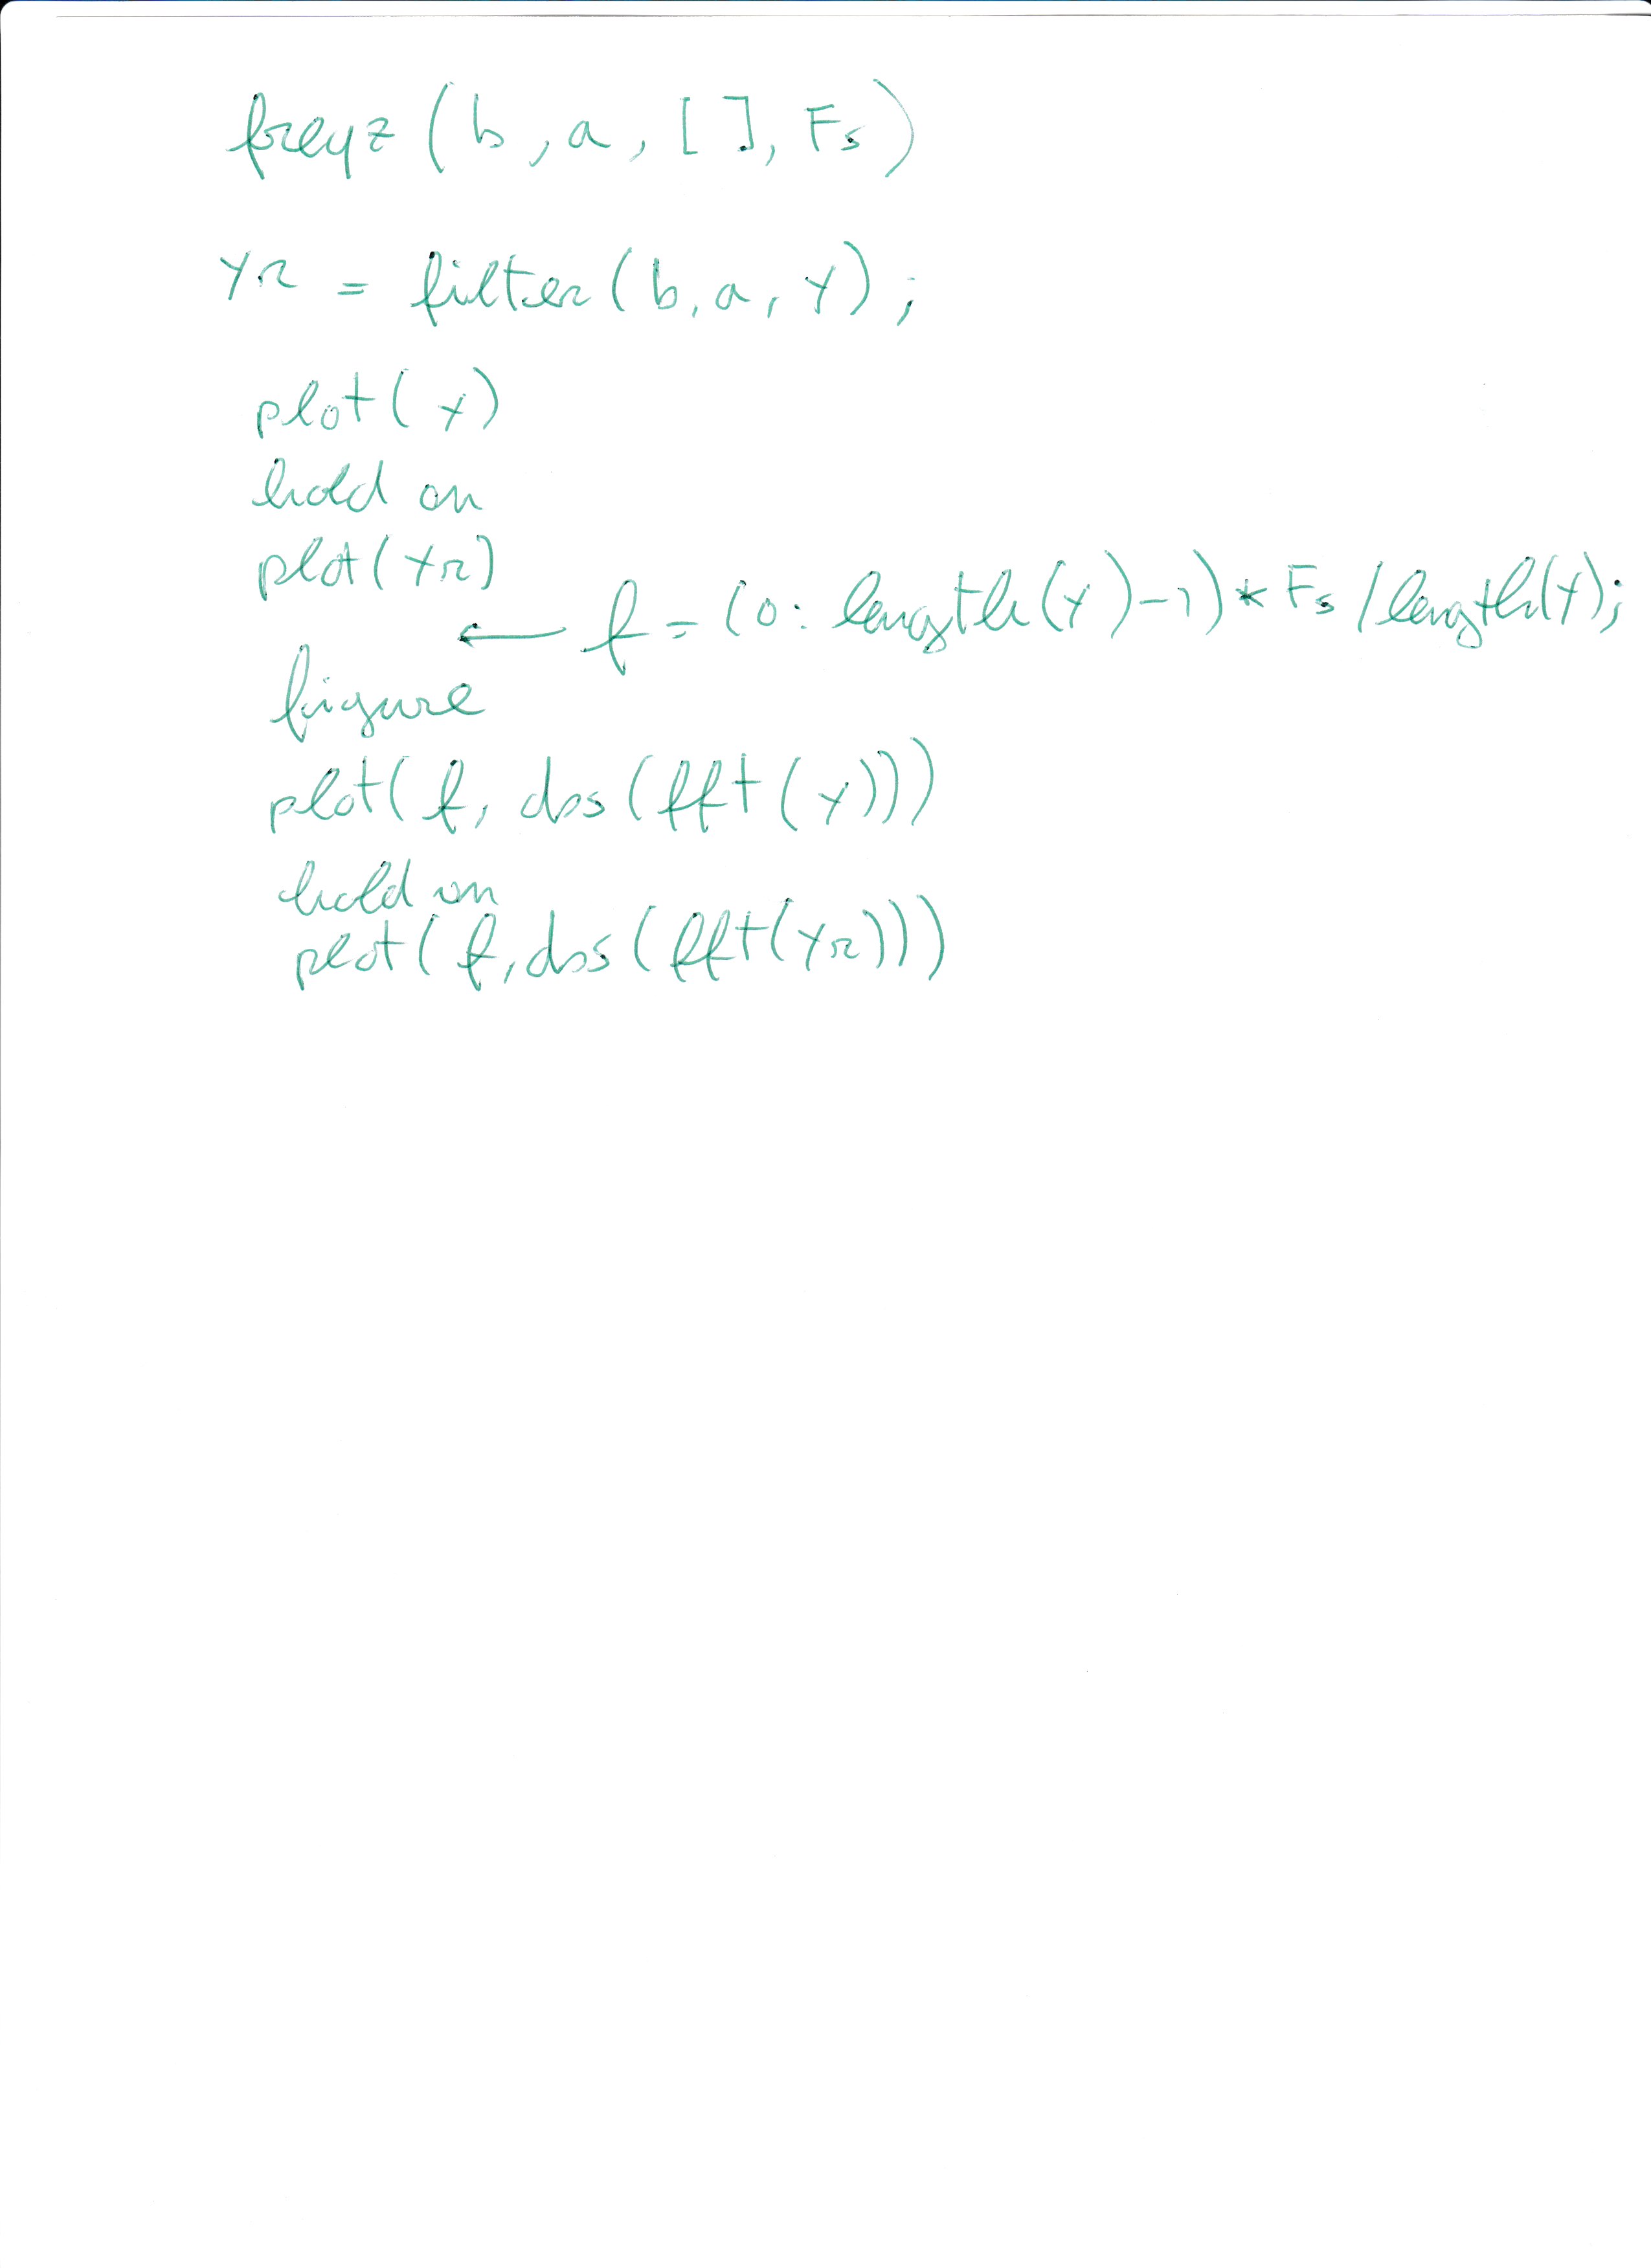 freqz(b,a,[],Fs)
yr = filter(b,a,y);
plot(y)
hold on
plot(yr)
← f = (0:length(y)-1)*Fs/length(y);
figure
plot(f,abs(fft(y)))
hold on
plot(f,abs(fft(yr)))